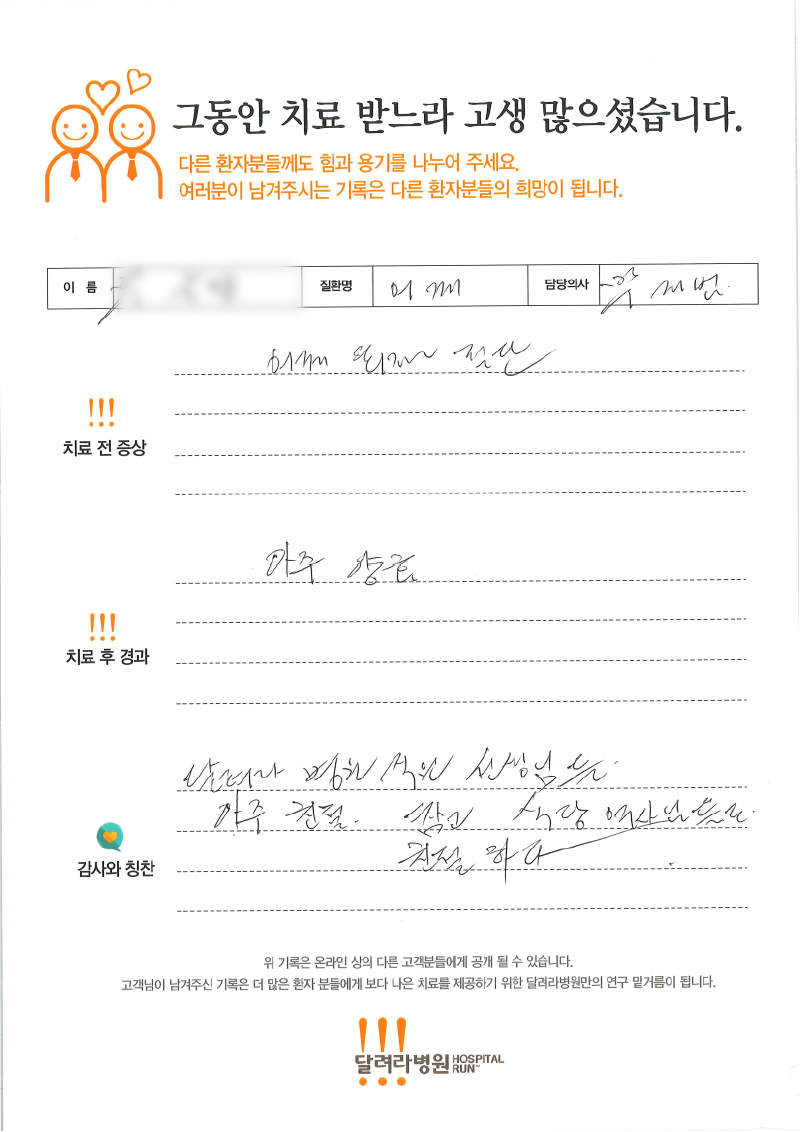 그동안 치료 받느라 고생 많으셨습니다.
다른 환자분들께도 힘과 용기를 나누어 주세요.
여러분이 남겨주시는 기록은 다른 환자분들의 희망이 됩니다.
이 름 질환명 어깨 담당의사 재범.
어깨 진단
!!!
치료 전 증상
아주 양호
!!!
치료 후 경과
달려라 병원 직원 선생님들.
아주 친절. 식당 여사님들도.
친절하다
감사와 칭찬
위 기록은 온라인 상의 다른 고객분들에게 공개 될 수 있습니다.
고객님이 남겨주신 기록은 더 많은 환자 분들에게 보다 나은 치료를 제공하기 위한 달려라병원만의 연구 밑거름이 됩니다.
!!!
달려라병원 HOSPITAL RUN